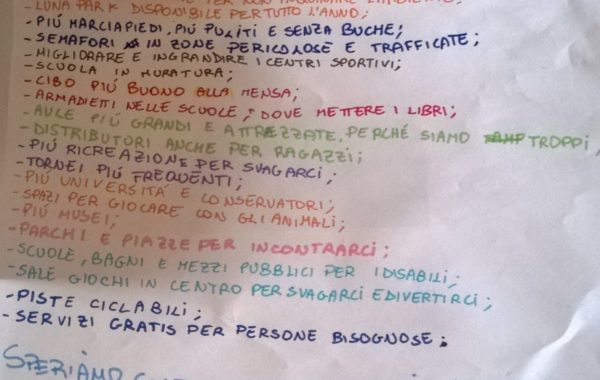 PER NON INQUINARE L'AMBIENTE
- LUNA PARK DISPONIBILE PER TUTTO L'ANNO;
- PIÚ MARCIAPIEDI, PIÚ PULITI E SENZA BUCHE;
- SEMAFORI IN ZONE PERICOLOSE E TRAFFICATE;
- MIGLIORARE E INGRANDIRE I CENTRI SPORTIVI;
- SCUOLA IN MURATURA;
- CIBO PIÚ BUONO ALLA MENSA;
- ARMADIETTI NELLE SCUOLE, DOVE METTERE I LIBRI;
- AULE PIÚ GRANDI E ATTREZZATE, PERCHÉ SIAMO TROPPI;
- DISTRIBUTORI ANCHE PER RAGAZZI;
- PIÚ RICREAZIONE PER SVAGARCI;
- TORNEI PIÚ FREQUENTI;
- PIÚ UNIVERSITÁ E CONSERVATORI;
- SPAZI PER GIOCARE CON GLI ANIMALI;
- PIÚ MUSEI;
- PARCHI E PIAZZE PER INCONTRARCI;
- SCUOLE, BAGNI E MEZZI PUBBLICI PER I DISABILI;
- SALE GIOCHI IN CENTRO PER SVAGARCI E DIVERTIRCI;
- PISTE CICLABILI;
- SERVIZI GRATIS PER PERSONE BISOGNOSE;
SPERIAMO